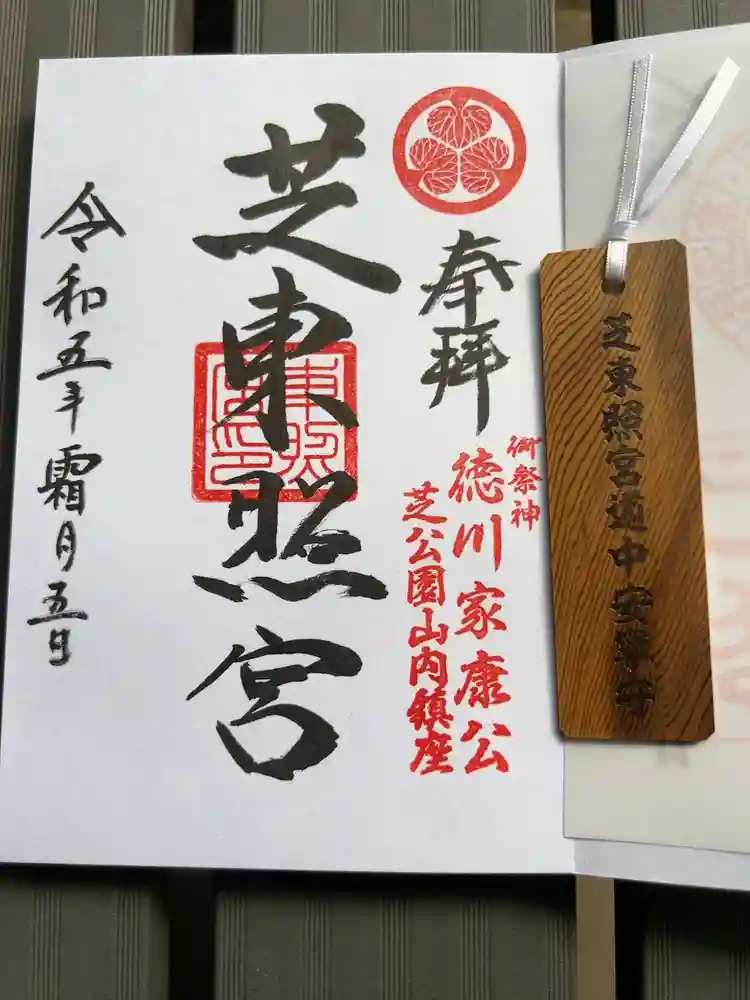 奉拝
御祭神
徳川家康公
芝公園山内鎮座
芝東照宮
東照
宮印
令和五年霜月五日
芝東照宮道中安寧守